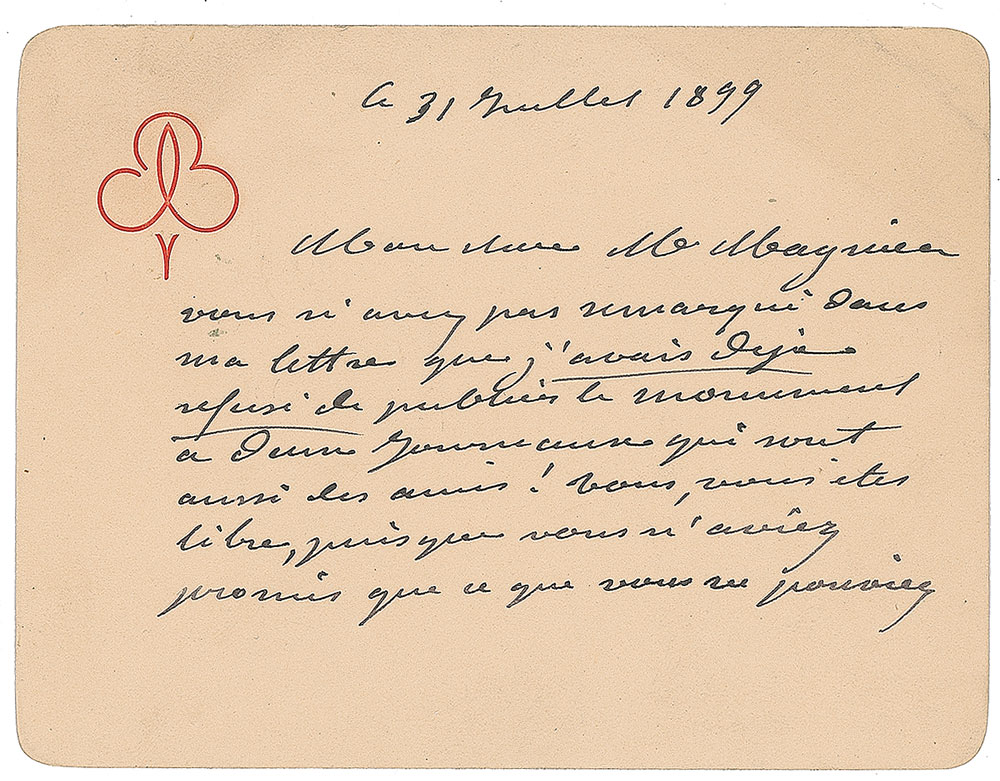 le 31 Juillet 1899
Mon cher Mr Magnier
vous n'avez pas remarqué dans
ma lettre que j'avais déjà
refusé de publier le monument
a deux Journeaux qui sont
aussi des amis! Vous, vous êtes
libre, puisque vous n'aviez
promis que ce que vous ne pouviez